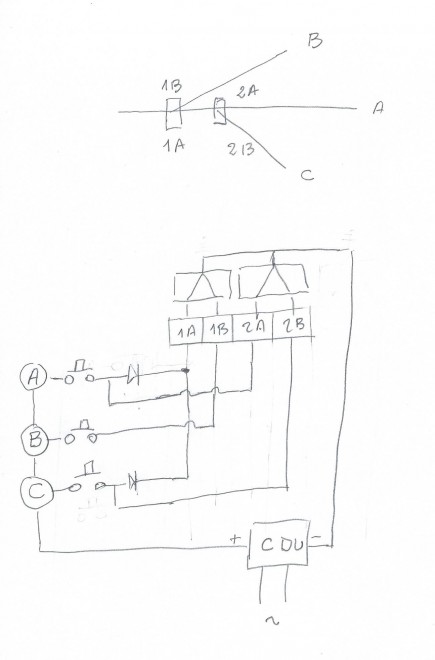 B
1B
2A
A
1A
2B
C
1A 1B 2A 2B
A
B
C
+ CDU -
~